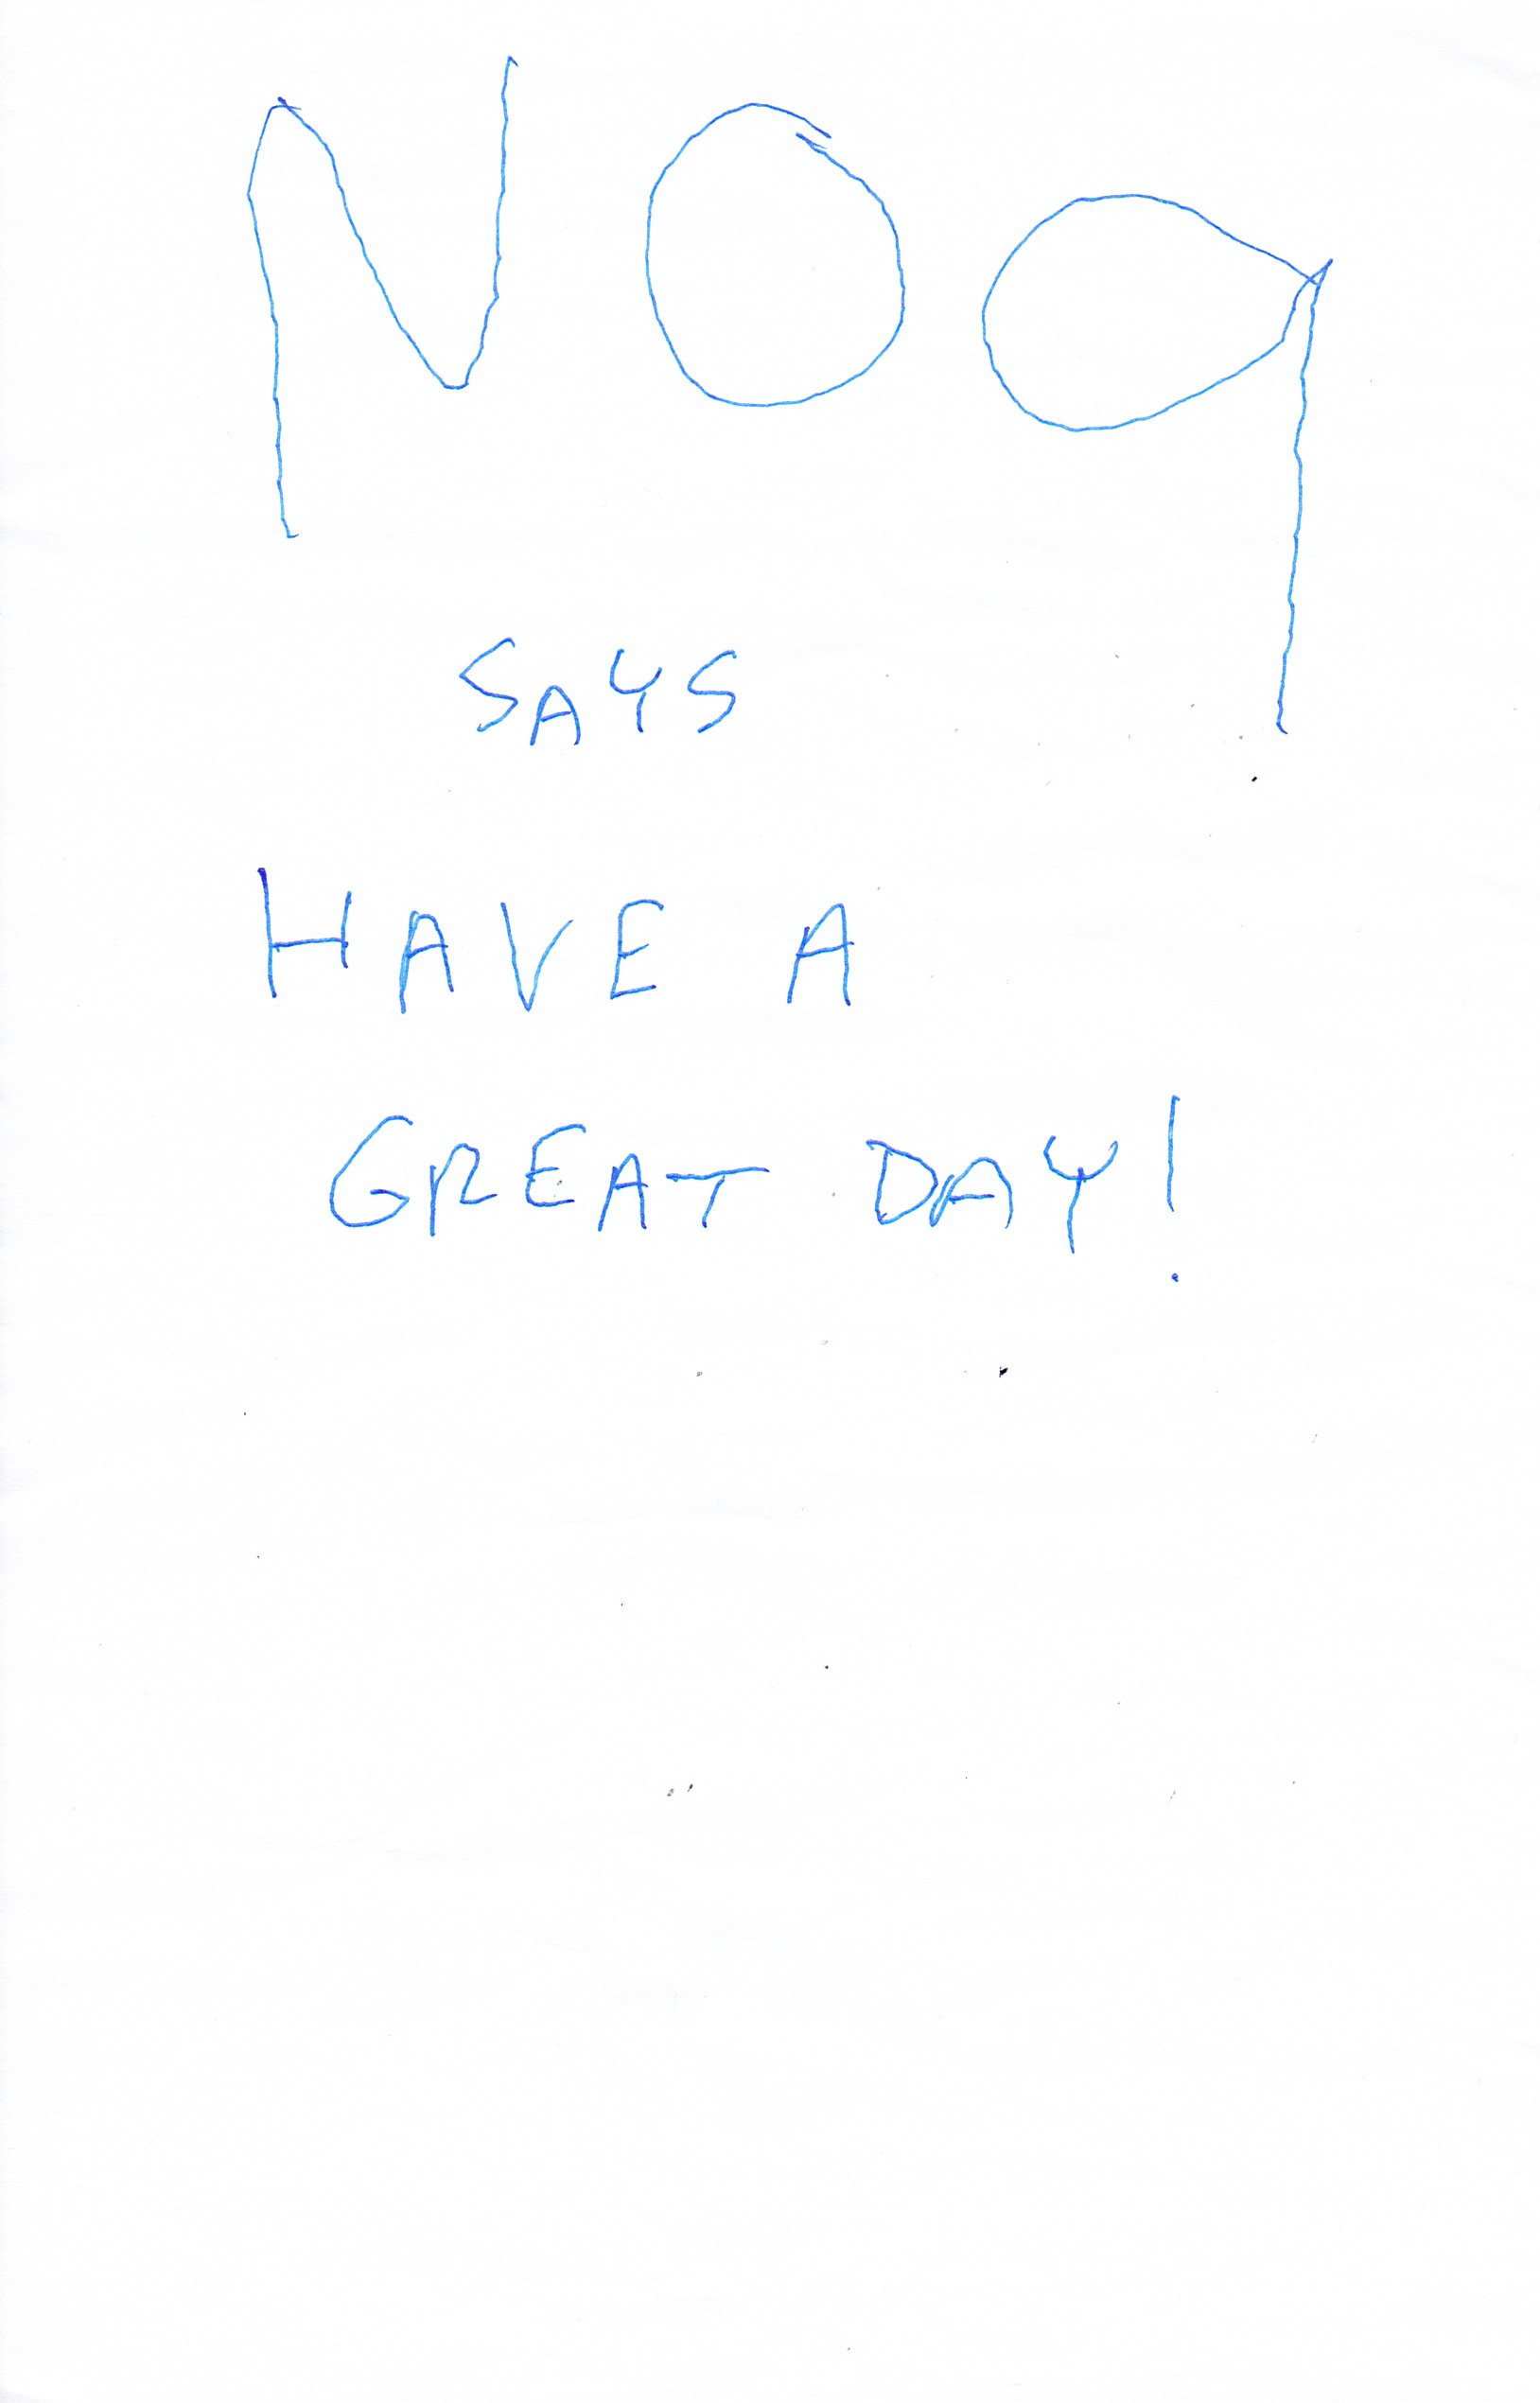 NOq
SAYS
HAVE A
GREAT DAY!